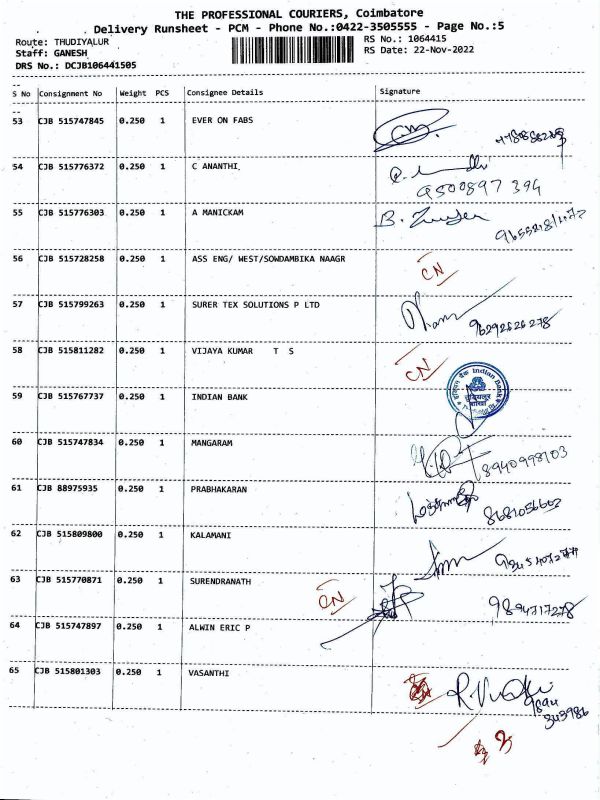 THE PROFESSIONAL COURIERS, Coimbatore
Delivery Runsheet - PCM - Phone No.:0422-3505555 - Page No.:5
Route: THUDIYALUR
RS No.: 1064415
Staff: GANESH
RS Date: 22-Nov-2022
DRS No.: DCJB106441505
S No Consignment No Weight PCS Consignee Details Signature
53 CJB 515747845 0.250 1 EVER ON FABS
54 CJB 515776372 0.250 1 C ANANTHI
9500897 394
55 CJB 515776303 0.250 1 A MANICKAM
56 CJB 515728258 0.250 1 ASS ENG/ WEST/SOWDAMBIKA NAAGR
CN
57 CJB 515799263 0.250 1 SURER TEX SOLUTIONS P LTD
96292626278
58 CJB 515811282 0.250 1 VIJAYA KUMAR T S
CN
59 CJB 515767737 0.250 1 INDIAN BANK
Indian Bank
60 CJB 515747834 0.250 1 MANGARAM
8940998103
61 CJB 88975935 0.250 1 PRABHAKARAN
8681056602
62 CJB 515809800 0.250 1 KALAMANI
63 CJB 515770871 0.250 1 SURENDRANATH
CN
9894717278
64 CJB 515747897 0.250 1 ALWIN ERIC P
65 CJB 515801303 0.250 1 VASANTHI
9894
343986